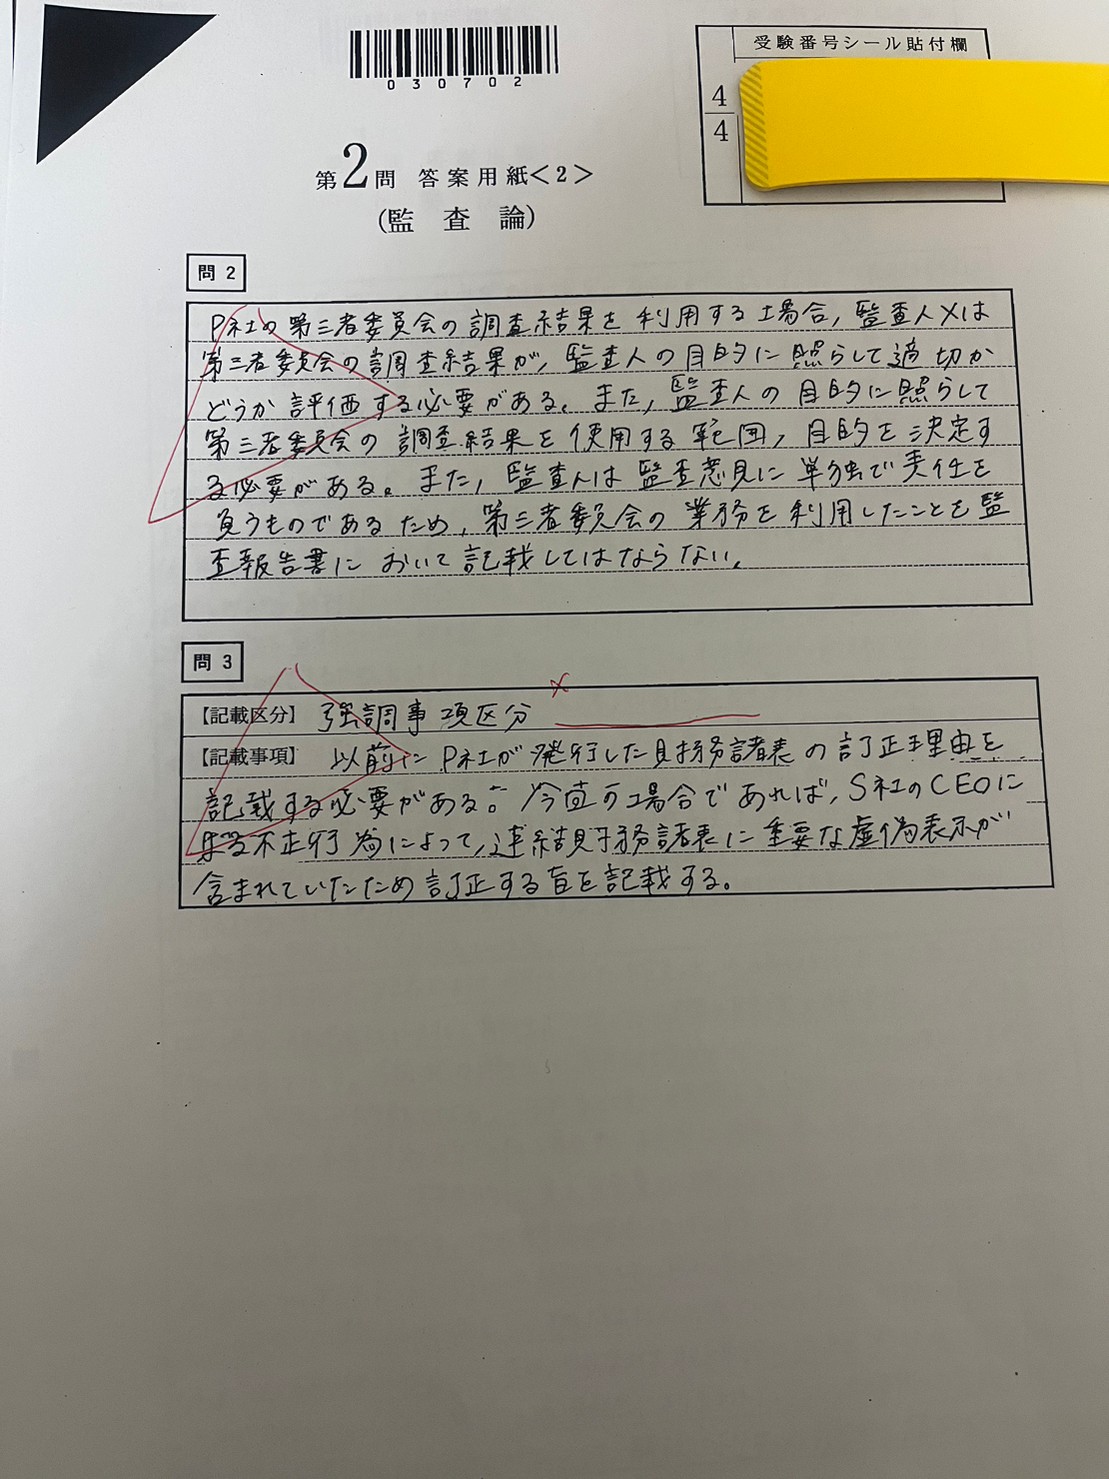 030702
受験番号シール貼付欄
4
4
第2問 答案用紙<2>
(監査論)
問 2
P社の第三者委員会の調査結果を利用する場合, 監査人Xは
第三者委員会の調査結果が, 監査人の目的に照らして適切か
どうか評価する必要がある。また, 監査人の目的に照らして
第三者委員会の調査結果を使用する範囲, 目的を決定す
る必要がある。また, 監査人は監査意見に単独で責任を
負うものであるため, 第三者委員会の業務を利用したことを監
査報告書において記載してはならない。
問 3
【記載区分】 強調事項区分
【記載事項】 以前にP社が発行した財務諸表の訂正理由を
記載する必要がある。今回の場合であれば, S社のCEOに
よる不正行為によって, 連結財務諸表に重要な虚偽表示が
含まれていたため訂正する旨を記載する。